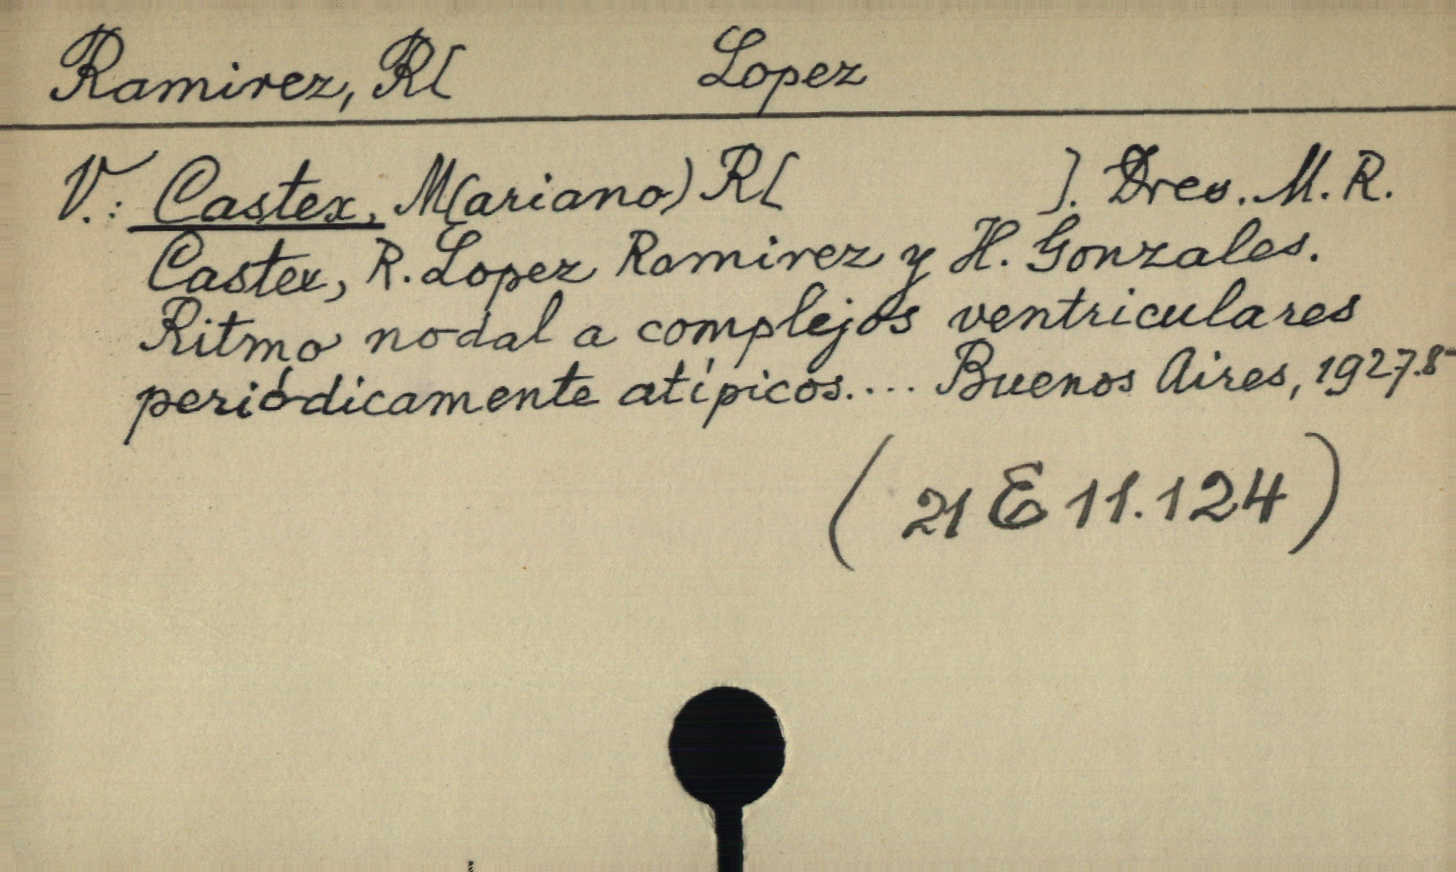 Ramirez, R[ Lopez
V.: Castex, M(ariano) R[ ]. Dres. M. R.
Castex, R. Lopez Ramirez y H. Gonzales.
Ritmo nodal a complejos ventriculares
periódicamente atípicos.... Buenos Aires, 1927.8-
(21 E 11.124)